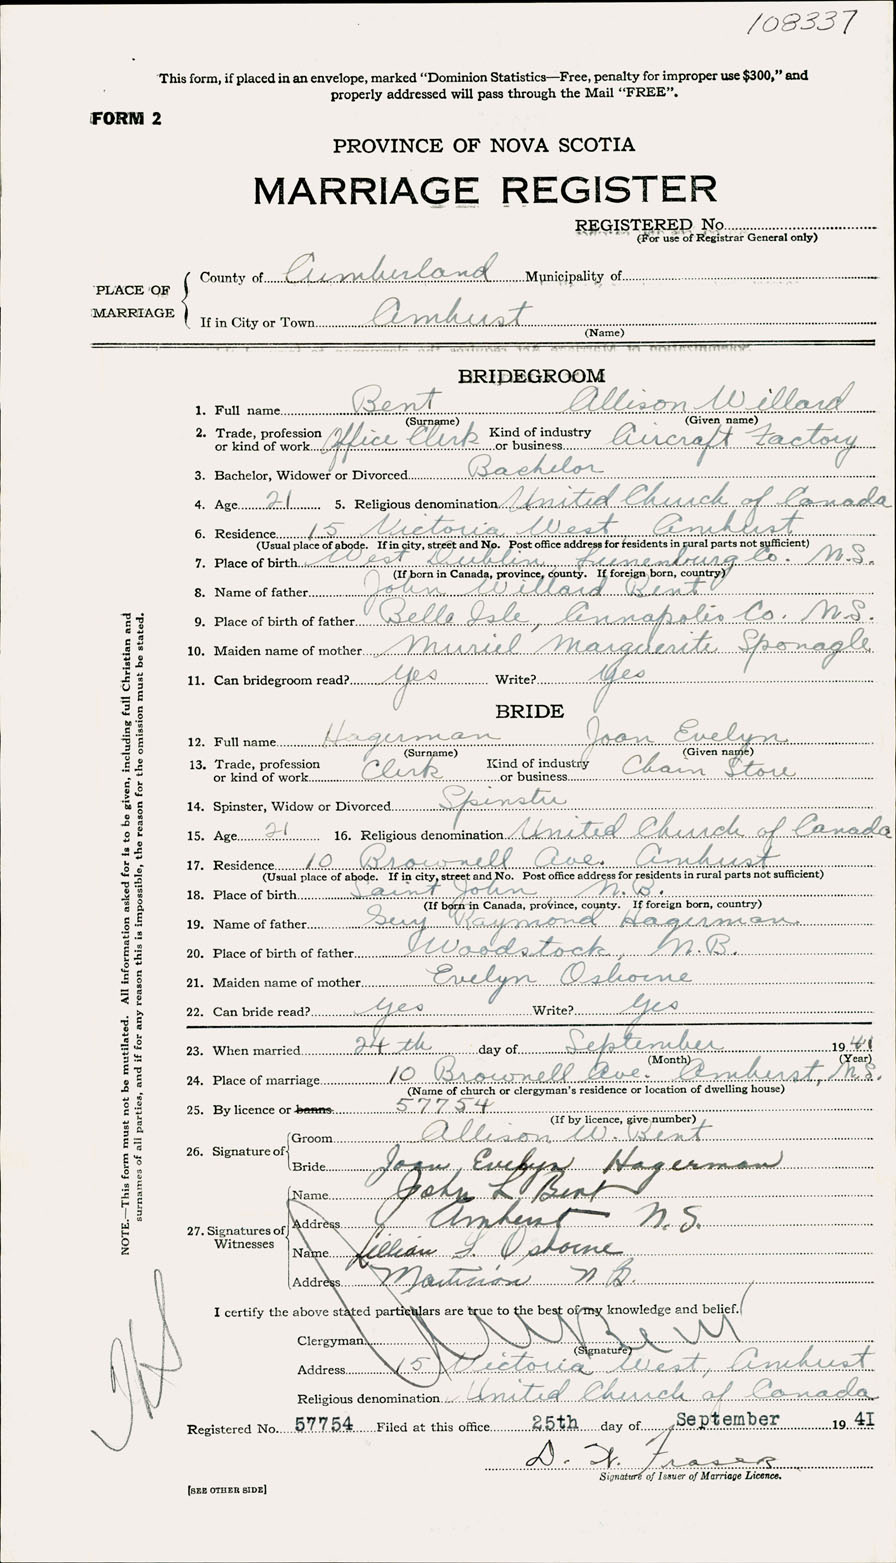 108337
This form, if placed in an envelope, marked “Dominion Statistics—Free, penalty for improper use $300,” and
properly addressed will pass through the Mail “FREE”.
FORM 2
PROVINCE OF NOVA SCOTIA
MARRIAGE REGISTER
REGISTERED No.
(For use of Registrar General only)
PLACE OF MARRIAGE
County of Cumberland Municipality of
If in City or Town Amhurst
(Name)
BRIDEGROOM
1. Full name Bent Allison Willard
(Surname) (Given name)
2. Trade, profession or kind of work Office Clerk Kind of industry or business Aircraft Factory
3. Bachelor, Widower or Divorced Bachelor
4. Age 21 5. Religious denomination United Church of Canada
6. Residence 15 Victoria West Amhurst
(Usual place of abode. If in city, street and No. Post office address for residents in rural parts not sufficient)
7. Place of birth West Dublin Lunenburg Co. N.S.
(If born in Canada, province, county. If foreign born, country)
8. Name of father John Willard Bent
9. Place of birth of father Belle Isle, Annapolis Co. N.S.
10. Maiden name of mother Muriel Marguerite Sponagle
11. Can bridegroom read? Yes Write? Yes
BRIDE
12. Full name Hagerman Joan Evelyn
(Surname) (Given name)
13. Trade, profession or kind of work Clerk Kind of industry or business Chain Store
14. Spinster, Widow or Divorced Spinster
15. Age 21 16. Religious denomination United Church of Canada
17. Residence 10 Brownell Ave. Amhurst
(Usual place of abode. If in city, street and No. Post office address for residents in rural parts not sufficient)
18. Place of birth Saint John N.B.
(If born in Canada, province, county. If foreign born, country)
19. Name of father Guy Raymond Hagerman
20. Place of birth of father Woodstock, N.B.
21. Maiden name of mother Evelyn Osborne
22. Can bride read? Yes Write? Yes
23. When married 24th day of September 1941
(Month) (Year)
24. Place of marriage 10 Brownell Ave. Amherst, N.S.
(Name of church or clergyman's residence or location of dwelling house)
25. By licence or banns 57754
(If by licence, give number)
26. Signature of
Groom Allison W. Bent
Bride Joan Evelyn Hagerman
27. Signatures of Witnesses
Name John L Bent
Address Amherst N.S.
Name Lillian L. Osborne
Address N B.
I certify the above stated particulars are true to the best of my knowledge and belief.
Clergyman Bent
(Signature)
Address 15 Victoria West, Amhurst
Religious denomination United Church of Canada
Registered No. 57754 Filed at this office 25th day of September 1941
D. W. Fraser
Signature of Issuer of Marriage Licence.
[SEE OTHER SIDE]
NOTE.—This form must not be mutilated. All information asked for is to be given, including full Christian and
surnames of all parties, and if for any reason this is impossible, the reason for the omission must be stated.